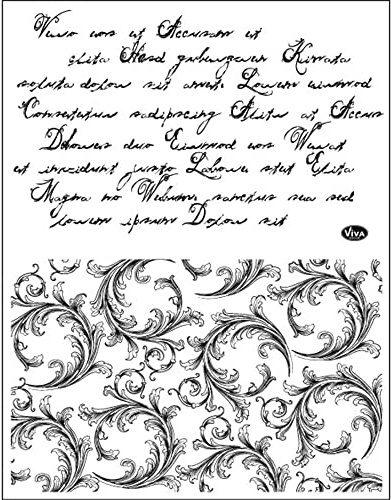 Vero eos et Accusam et
elita Head gubergren Kimata
soluta dolou sit amet. Lorem eiumod
Consetetur sadipscing Alitu at Accus
Dolores duo Eiumod eos
et invidunt justo Labore stet Elita
Magna no sanctus sea sed
lorem ipsum Dolou sit
VIVA